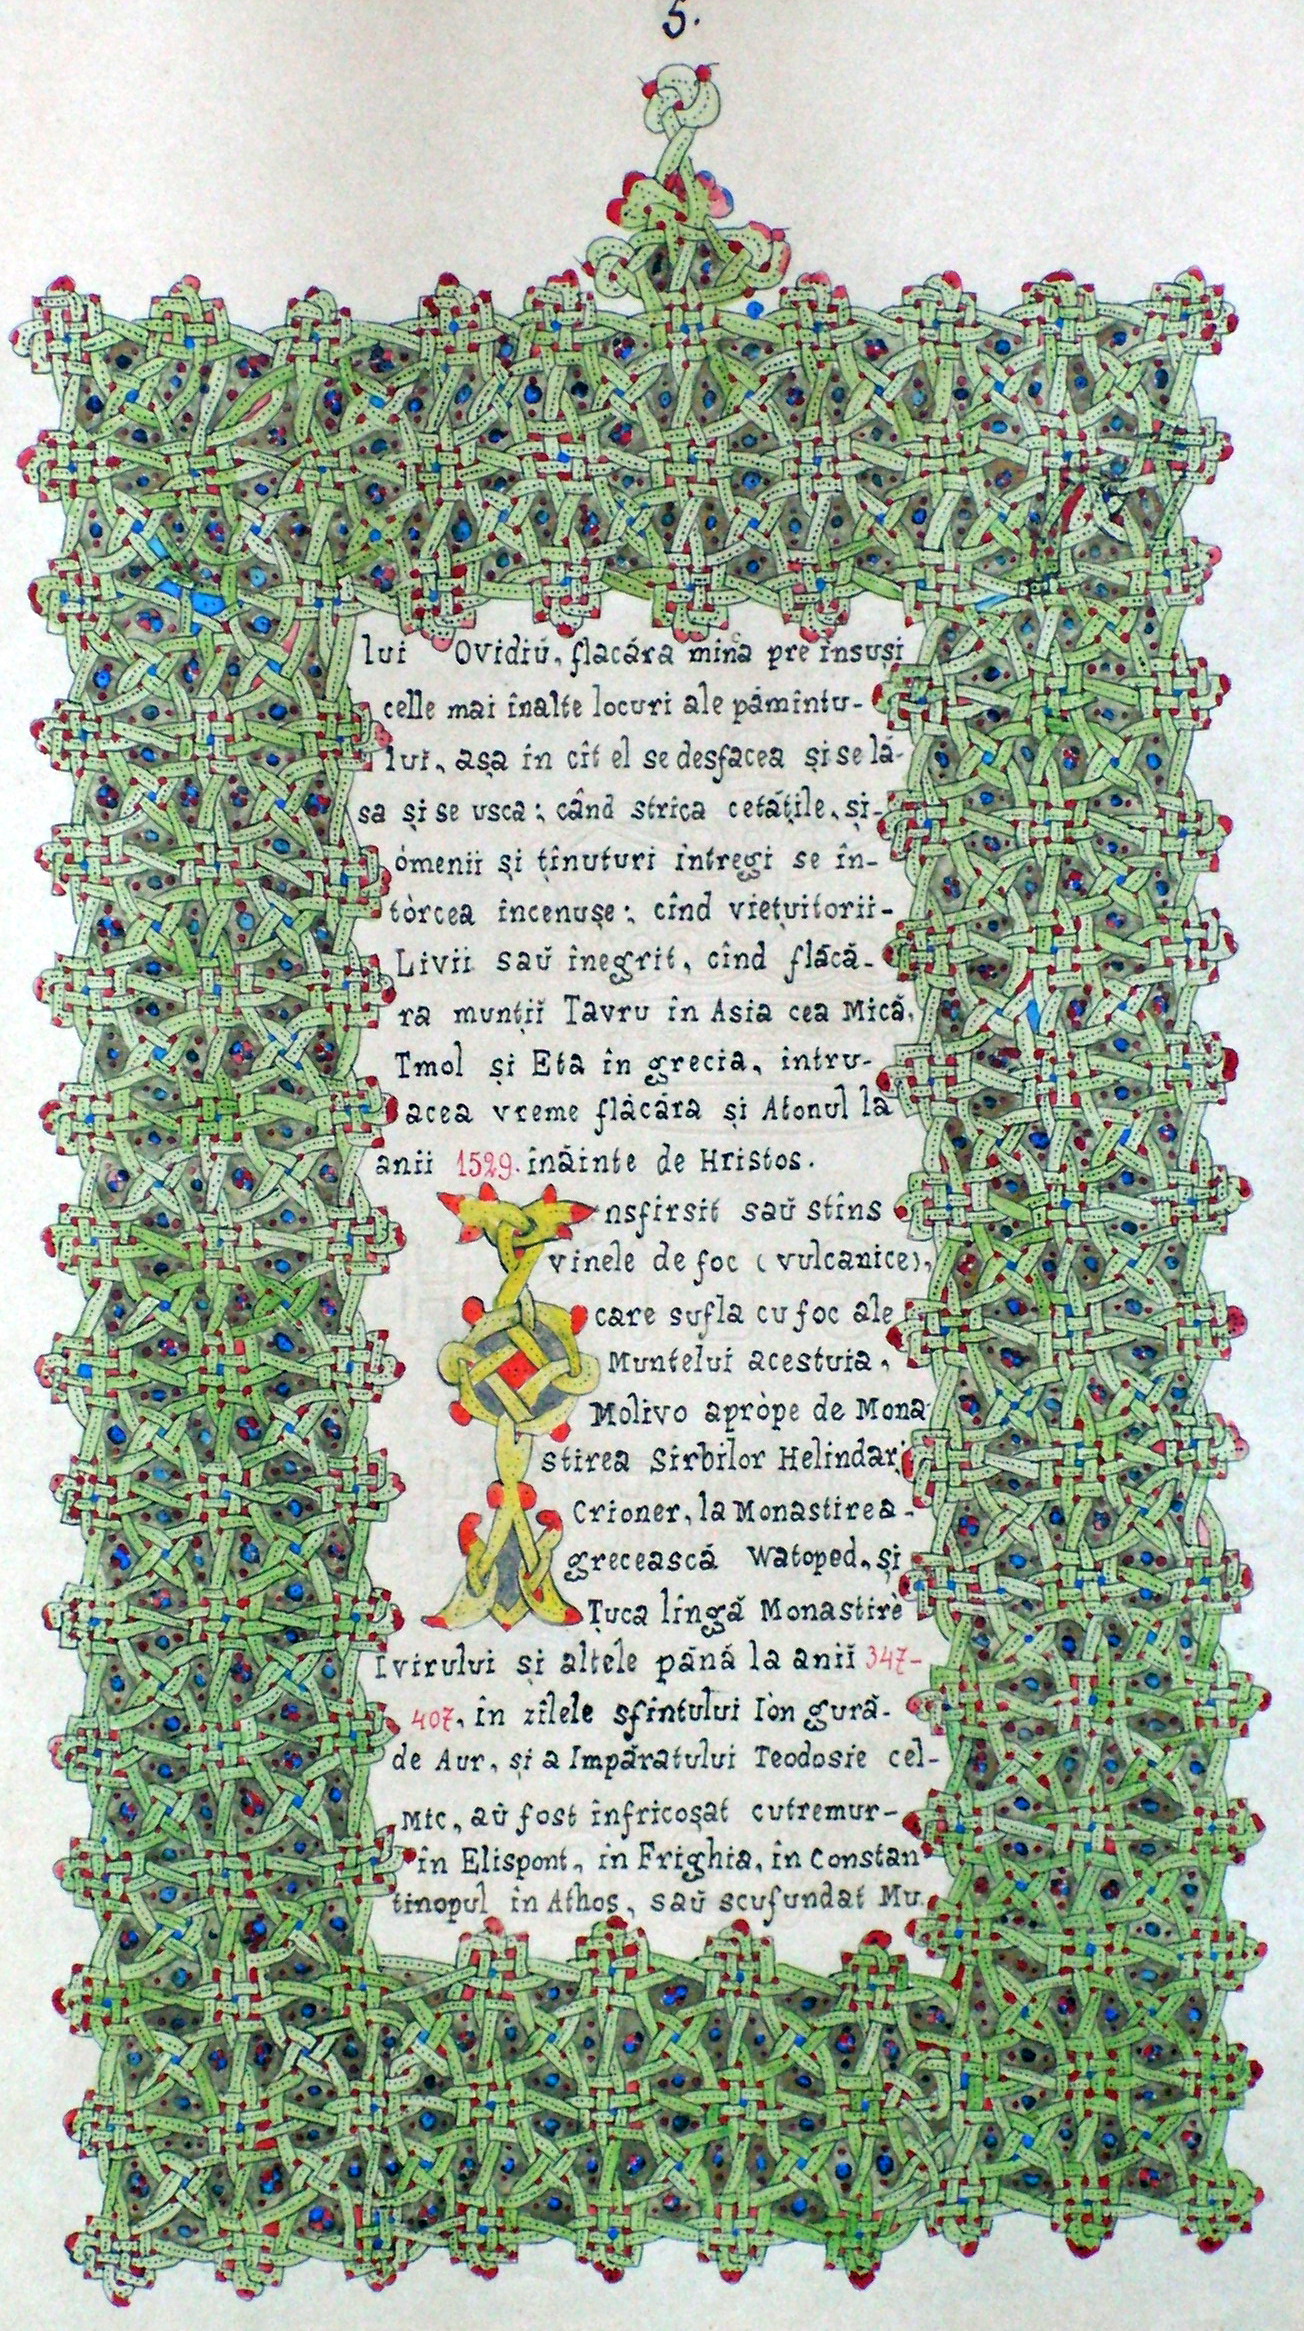 5.
lui Ovidiŭ, flacăra mina pre însuși
celle mai înalte locuri ale pămîntu-
lui, așa în cît el se desfacea și se lă-
sa și se usca; când strica cetățile, și-
òmenii și ținuturi întregi se în-
tòrcea încenușe; cînd viețuitorii-
Livii saŭ înegrit, cînd flăcă-
ra munții Tavru în Asia cea Mică,
Tmol și Eta în grecia, intru-
acea vreme flăcăra și Atonul la
anii 1529. înăinte de Hristos.
Insfirsit saŭ stîns
vinele de foc (vulcanice),
care sufla cu foc ale
Muntelui acestuia,
Molivo apròpe de Mona
stirea Sirbilor Helindar,
Crioner, la Monastirea-
grecească Watoped, și
Țuca lîngă Monastirè
Ivirului și altele până la anii 347-
407, în zîlele sfîntului Iòn gură-
de Aur, și a Impăratului Teodosie cel-
Mic, aŭ fost înfricoșat cutremur-
în Elispont, in Frighia, în Constan
tinopul în Athos, saŭ scufundat Mu.